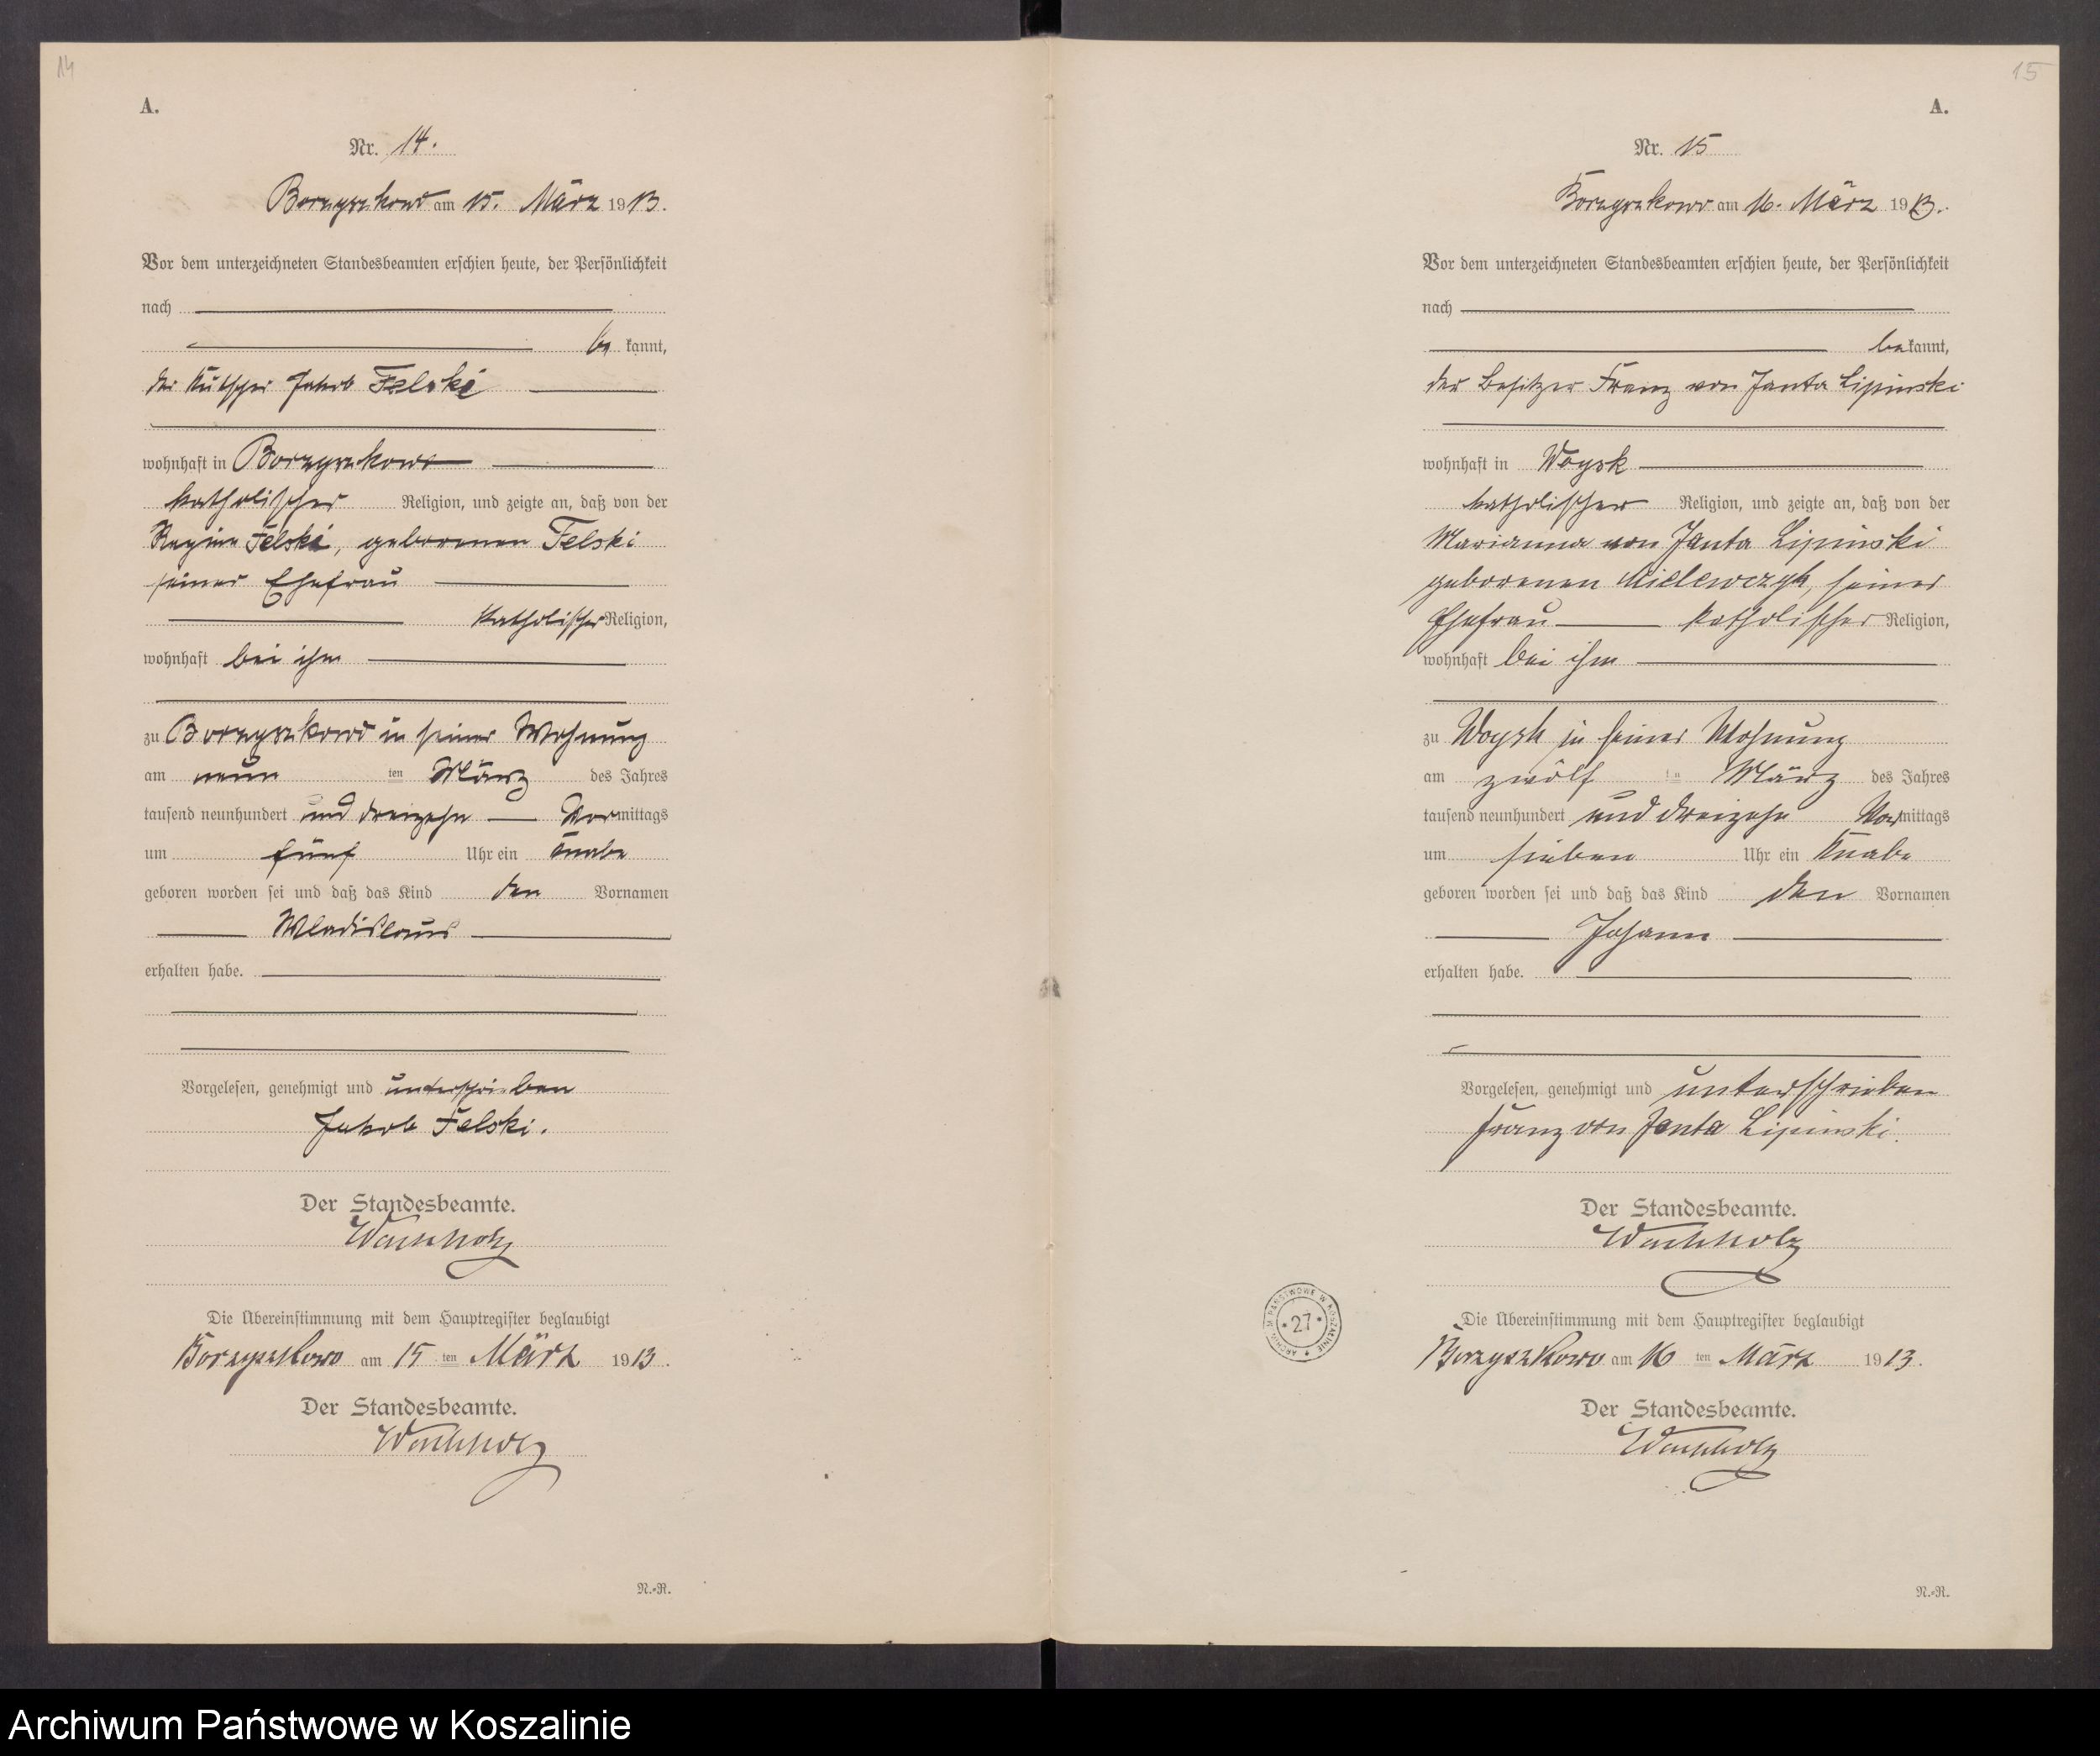 14
A.
Nr. 14.
Borzyszkowo am 15. März 1913.
Vor dem unterzeichneten Standesbeamten erschien heute, der Persönlichkeit
nach
be kannt,
der Kutscher Jakob Felski
wohnhaft in Borzyszkowo
katholischer Religion, und zeigte an, daß von der
Regina Felski, geborenen Felski
seiner Ehefrau
katholischer Religion,
wohnhaft bei ihm
zu Borzyszkowo in seiner Wohnung
am neun ten März des Jahres
tausend neunhundert und dreizehn Vormittags
um fünf Uhr ein Knabe
geboren worden sei und daß das Kind den Vornamen
Wladislaus
erhalten habe.
Vorgelesen, genehmigt und unterschrieben
Jakob Felski.
Der Standesbeamte.
Wachholz
Die Übereinstimmung mit dem Hauptregister beglaubigt
Borzyszkowo am 15 ten März 1913.
Der Standesbeamte.
Wachholz
N.-R.
15
A.
Nr. 15
Borzyszkowo am 16. März 1913.
Vor dem unterzeichneten Standesbeamten erschien heute, der Persönlichkeit
nach
bekannt,
der Besitzer Franz von Janta Lipinski
wohnhaft in Woysk
katholischer Religion, und zeigte an, daß von der
Marianna von Janta Lipinski
geborenen Mielewczyk, seiner
Ehefrau katholischer Religion,
wohnhaft bei ihm
zu Woysk in seiner Wohnung
am zwölf ten März des Jahres
tausend neunhundert und dreizehn Vormittags
um sieben Uhr ein Knabe
geboren worden sei und daß das Kind den Vornamen
Johann
erhalten habe.
Vorgelesen, genehmigt und unterschrieben
Franz von Janta Lipinski.
Der Standesbeamte.
Wachholz
ARCHIWUM PAŃSTWOWE W KOSZALINIE
* 27 *
Die Übereinstimmung mit dem Hauptregister beglaubigt
Borzyszkowo am 16 ten März 1913.
Der Standesbeamte.
Wachholz
N.-R.
Archiwum Państwowe w Koszalinie